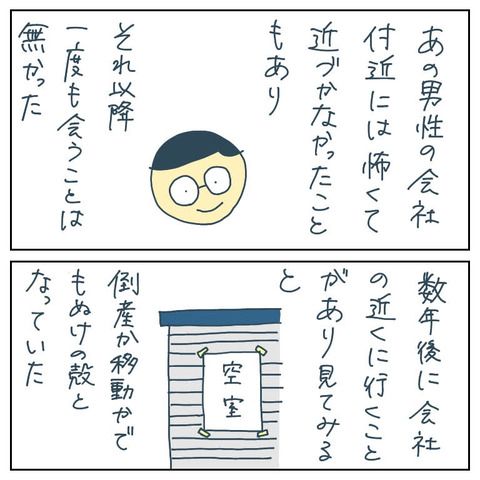 あの男性の会社
付近には怖くて
近づかなかったこと
もあり
それ以降
一度も会うことは
無かった
数年後に会社
の近くに行くこと
があり見てみる
と
空室
倒産か移動かで
もぬけの殻と
なっていた